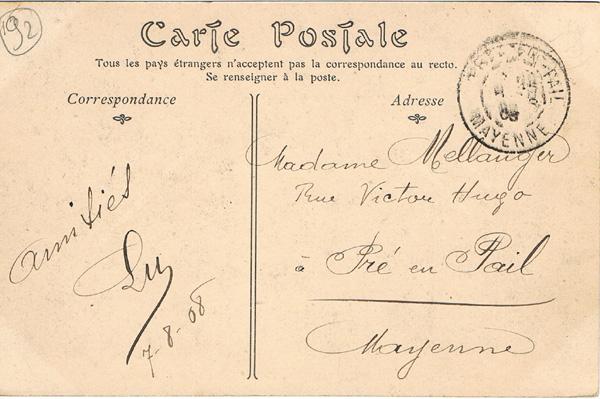 192
Carte Postale
Tous les pays étrangers n'acceptent pas la correspondance au recto.
Se renseigner à la poste.
Correspondance
Adresse
PRÉ-EN-PAIL
08
MAYENNE
Madame Mellanger
Rue Victor Hugo
à Pré en Pail
Mayenne
amitiés
7-8-08